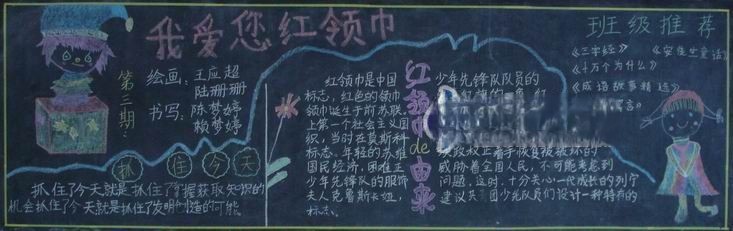 我爱您红领巾
第二期:
绘画: 王应超
陆珊珊
书写: 陈梦婷
赖梦婷
抓住今天
抓住了今天就是抓住了掌握获取知识的
机会抓住了今天就是抓住了发明创造的可能
红领巾de由来
红领巾是中国
标志,红色的领巾
领巾诞生于前苏联
上第一个社会主义国
织,当时在莫斯科
标志。年轻的苏维
国民经济,困难正
少年先锋队的服饰
夫人克鲁斯卡娅,
标志。
少年先锋队队员的
威胁着全国人民,不可能考虑到
问题,这时,十分关心一代成长的列宁
建议共 团少先队员们设计一种特有的
班级推荐
《三字经》 《安徒生童话》
《十万个为什么》
《成语故事精选》